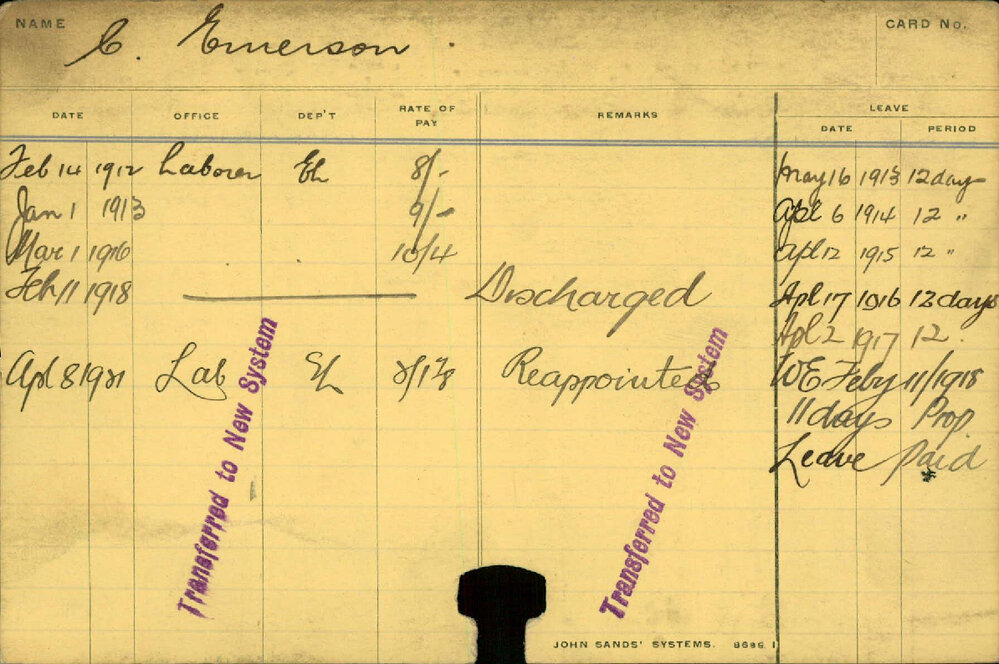 NAME C. Emerson. CARD No.
DATE OFFICE DEP'T RATE OF PAY REMARKS LEAVE
DATE PERIOD
Feb 14 1912 Laborer Eh 8/- May 16 1913 12 days
Jan 1 1913 9/- Apl 6 1914 12 "
Mar 1 1916 10/4 Apl 12 1915 12 "
Feb 11 1918 Discharged Apl 17 1916 12 days
Apl 2 1917 12.
Apl 8 1921 Lab Eh Reappointed WE Feby 11/1918
11 days Prop
Leave Paid
*
Transferred to New System
Transferred to New System
JOHN SANDS' SYSTEMS. 8686.1